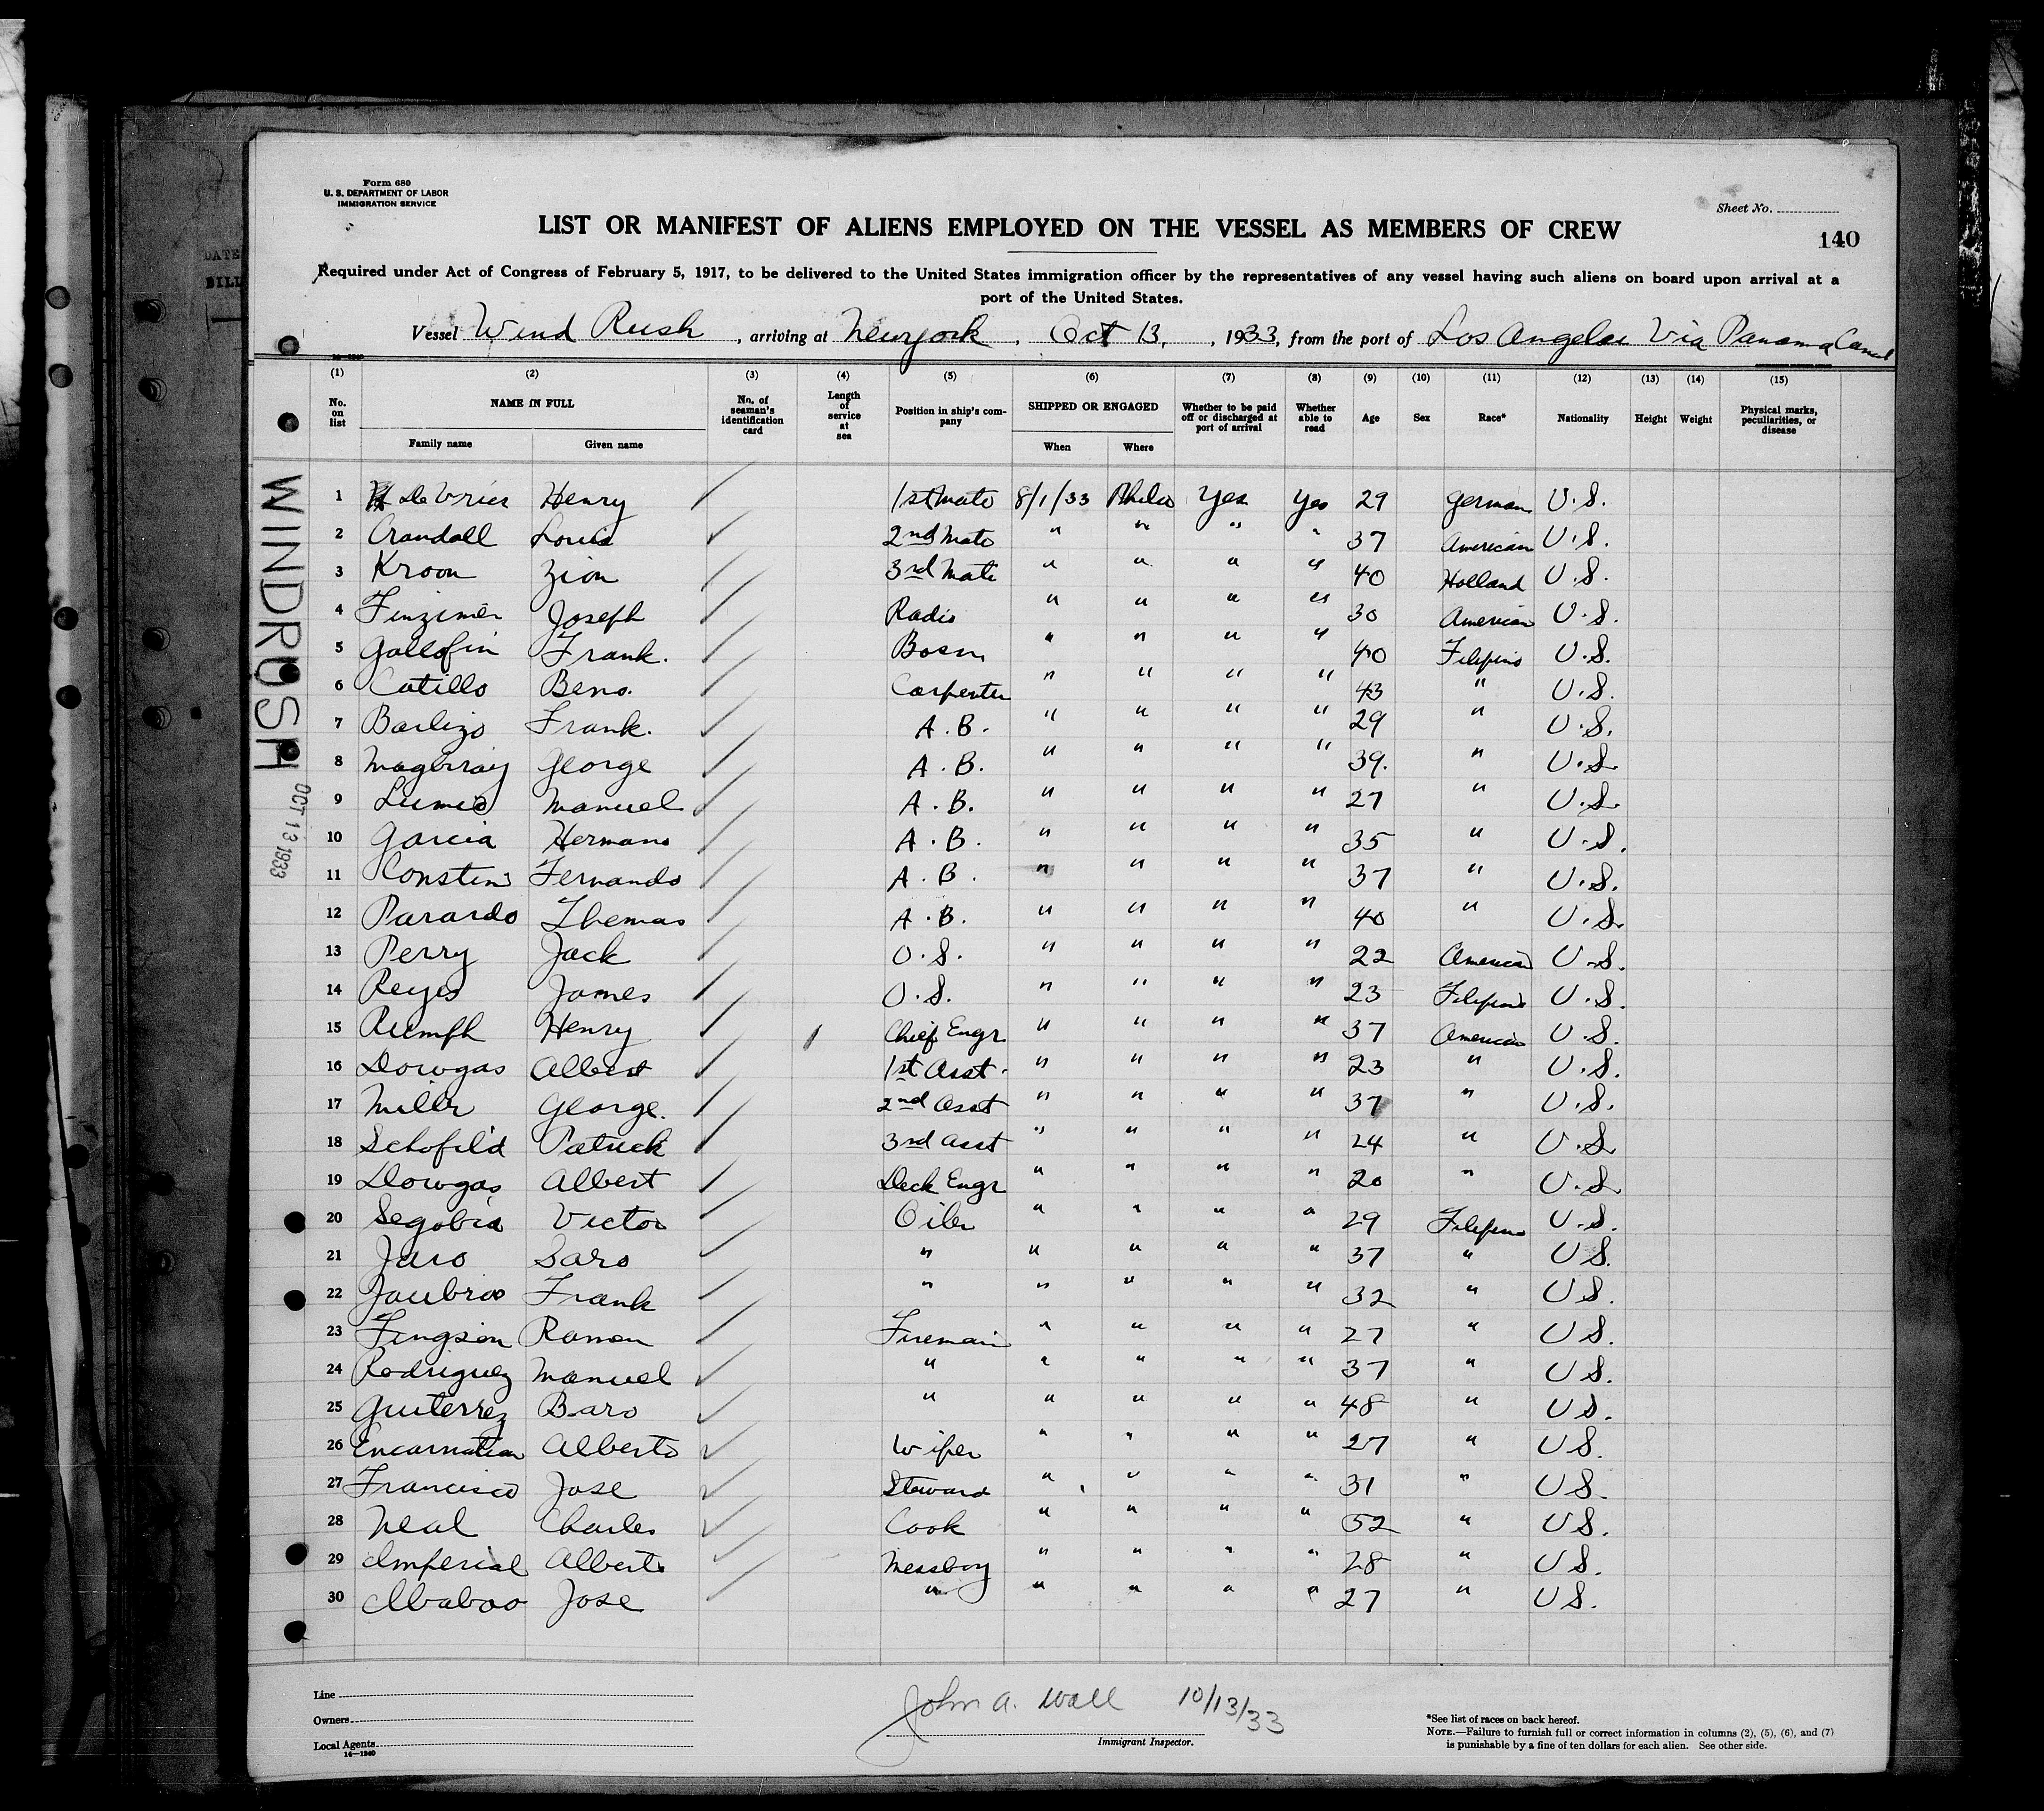 Form 680
U. S. DEPARTMENT OF LABOR
IMMIGRATION SERVICE
Sheet No.
LIST OR MANIFEST OF ALIENS EMPLOYED ON THE VESSEL AS MEMBERS OF CREW
140
Required under Act of Congress of February 5, 1917, to be delivered to the United States immigration officer by the representatives of any vessel having such aliens on board upon arrival at a
port of the United States.
Vessel Wind Rush, arriving at New York, Oct 13, 1933, from the port of Los Angeles Via Panama Canal
(1) (2) (3) (4) (5) (6) (7) (8) (9) (10) (11) (12) (13) (14) (15)
No. on list NAME IN FULL No. of seaman's identification card Length of service at sea Position in ship's company SHIPPED OR ENGAGED Whether to be paid off or discharged at port of arrival Whether able to read Age Sex Race* Nationality Height Weight Physical marks, peculiarities, or disease
Family name Given name When Where
WINDRUSH
OCT 13 1933
1 De Vries Henry 1st Mate 8/1/33 Phila Yes Yes 29 German U.S.
2 Crandall Louis 2nd Mate " " " " 37 American U.S.
3 Kroon Zion 3rd Mate " " " " 40 Holland U.S.
4 Finzimer Joseph Radio " " " " 30 American U.S.
5 Gallofin Frank. Bosn " " " " 40 Filipino U.S.
6 Catillo Beno. Carpenter " " " " 43 " U.S.
7 Barlizo Frank. A.B. " " " " 29 " U.S.
8 George A.B. " " " " 39. " U.S.
9 Manuel A.B. " " " " 27 " U.S.
10 Garcia Hermano A.B. " " " " 35 " U.S.
11 Fernando A.B. " " " " 37 " U.S.
12 Parardo Thomas A.B. " " " " 40 " U.S.
13 Perry Jack O.S. " " " " 22 American U.S.
14 Reyes James O.S. " " " " 23 Filipino U.S.
15 Rumph Henry Chief Engr " " " " 37 American U.S.
16 Dowgas Albert 1st Asst. " " " " 23 " U.S.
17 Miller George. 2nd Asst " " " " 37 " U.S.
18 Schofild Patrick 3rd Asst " " " " 24 " U.S.
19 Dowgas Albert Deck Engr " " " " 20 " U.S.
20 Segobia Victor Oiler " " " " 29 Filipino U.S.
21 Jaro Saro " " " " " 37 " U.S.
22 Frank " " " " " 32 " U.S.
23 Fingson Ramon Fireman " " " " 27 " U.S.
24 Rodriguez Manuel " " " " " 37 " U.S.
25 Guiterrez Baro " " " " " 48 " U.S.
26 Encarnation Alberto Wiper " " " " 27 " U.S.
27 Francisco Jose Steward " " " " 31 " U.S.
28 Neal Charles Cook " " " " 52 " U.S.
29 Imperial Alberto Messboy " " " " 28 " U.S.
30 Jose " " " " " 27 " U.S.
Line
Owners
Local Agents
14—1240
John A. Wall 10/13/33
Immigrant Inspector.
*See list of races on back hereof.
NOTE.—Failure to furnish full or correct information in columns (2), (5), (6), and (7)
is punishable by a fine of ten dollars for each alien. See other side.